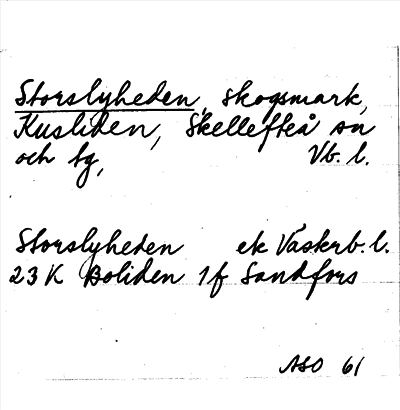 Storslyheden, skogsmark,
Kusliden, Skellefteå sn
och tg, Vb. l.
Storslyheden ek Västerb. l.
23 K Boliden 1f Sandfors
ASO 61